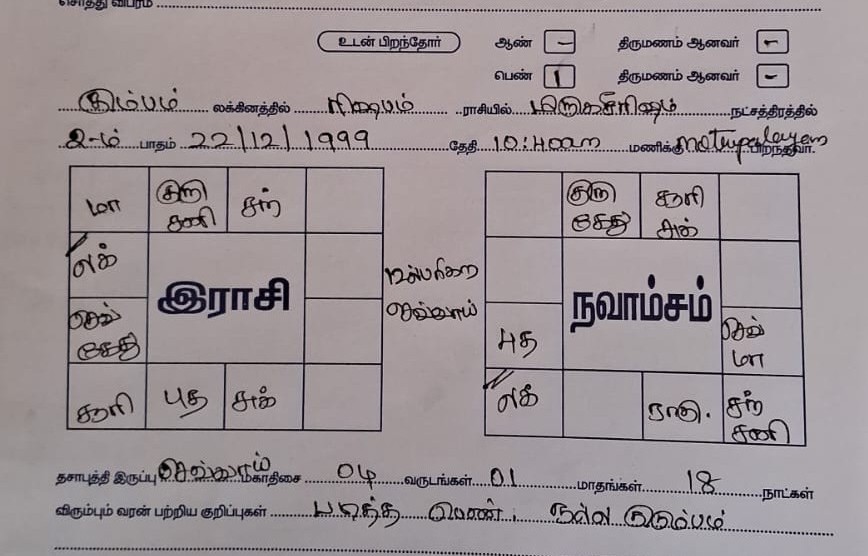 சொத்து விபரம்
உடன் பிறந்தோர் ஆண் - திருமணம் ஆனவர் -
பெண் 1 திருமணம் ஆனவர் -
கும்பம் லக்கினத்தில் ரிஷபம் ராசியில் மிருகசீரிஷம் நட்சத்திரத்தில்
2-ம் பாதம் 22/12/1999 தேதி 10:40am மணிக்கு பிறந்தவர்.
மா குரு சனி சந்
லக்
இராசி
செவ் கேது
சூரி புத சுக்
செவ்வாய்
குரு கேது சூரி சுக்
நவாம்சம்
புத செவ் மா
லக் ராகு. சந் சனி
தசாபுத்தி இருப்பு செவ்வாய் மகாதிசை 04 வருடங்கள் 01 மாதங்கள் 18 நாட்கள்
விரும்பும் வரன் பற்றிய குறிப்புகள் படித்த பெண், நல்ல குடும்பம்